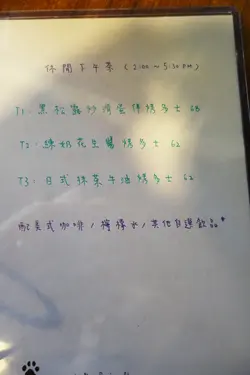 休閒下午茶 (2:00~5:30PM)
T1. 黑松露炒滑蛋佐烤多士 68
T2. 煉奶花生醬烤多士 62
T3. 日式抹茶牛油烤多士 62
配美式咖啡/檸檬水/其他自選飲品+